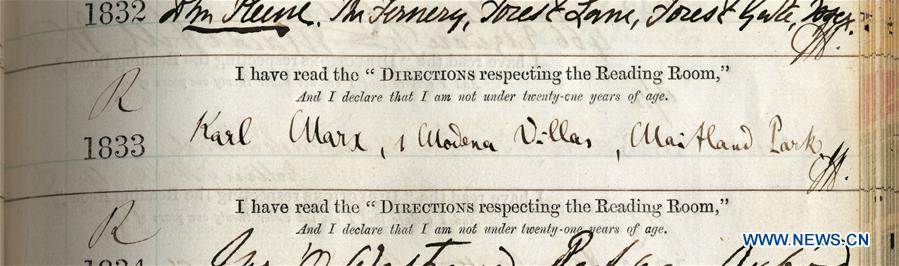 1832 Wm Keene. The Fernery, Forest Lane, Forest Gate, Essex.
I have read the “DIRECTIONS respecting the Reading Room,”
And I declare that I am not under twenty-one years of age.
R
1833 Karl Marx, 1 Modena Villas, Maitland Park
I have read the “DIRECTIONS respecting the Reading Room,”
And I declare that I am not under twenty-one years of age.
R
WWW.NEWS.CN